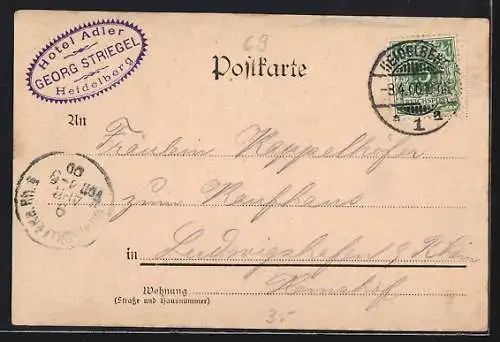 Hotel Adler
GEORG STRIEGEL
Heidelberg
69
Postkarte
HEIDELBERG
-8.4.00
* 1 a
REICHSPOST
An
Fräulein Kappelhöfer
zum Kaufhaus
in Ludwigshafen a/ Rhein
Hemshof
Wohnung
(Straße und Hausnummer)
3.-